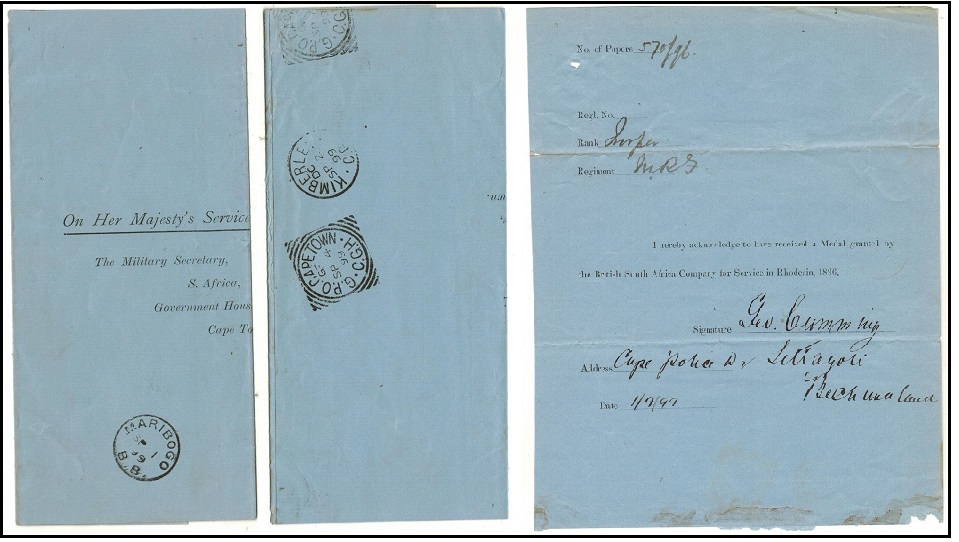 On Her Majesty's Service
The Military Secretary,
S. Africa,
Government Hous
Cape To
MARIBOGO
B.B.
G.P.O.
C.G
KIMBERLE
SP
99
G.P.O. CAPETOWN. C.G.H.
SP 4
99
No. of Papers 570/96.
Regl. No.
Rank Trooper
Regiment M.R.F
I hereby acknowledge to have received a Medal granted by
the British South Africa Company for Service in Rhodesia, 1896.
Signature Geo. Cumming
Address Cape Police
Bechuanaland
Date 1/9/99